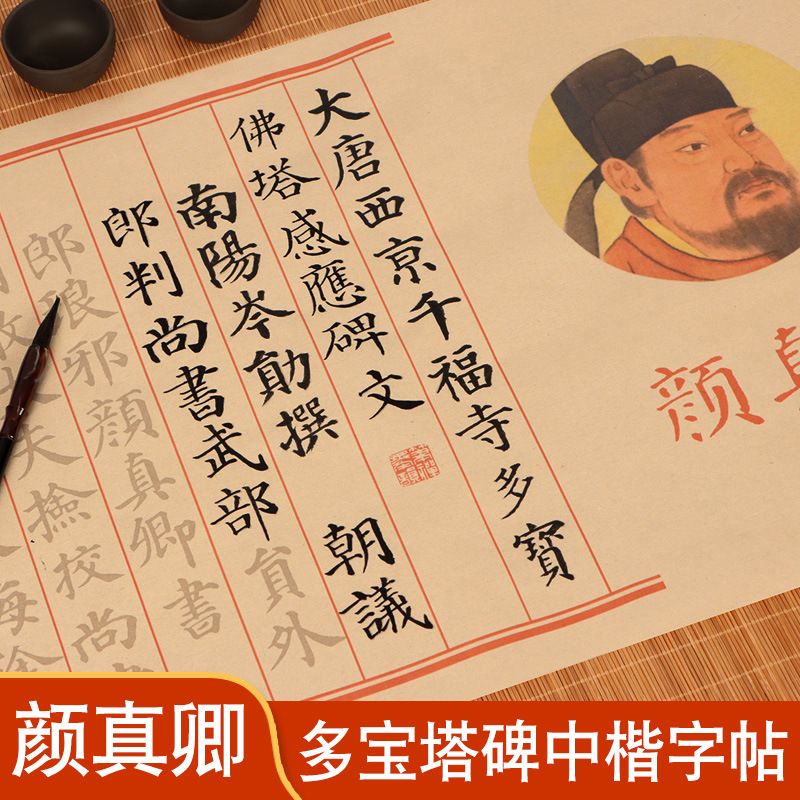 大唐西京千福寺多寶
佛塔感應碑文
南陽岑勛撰 朝議
郎判尚書武部員外
郎琅邪顏真卿書
散大夫撿校尚
海徐
顔真
颜真卿
多宝塔碑中楷字帖